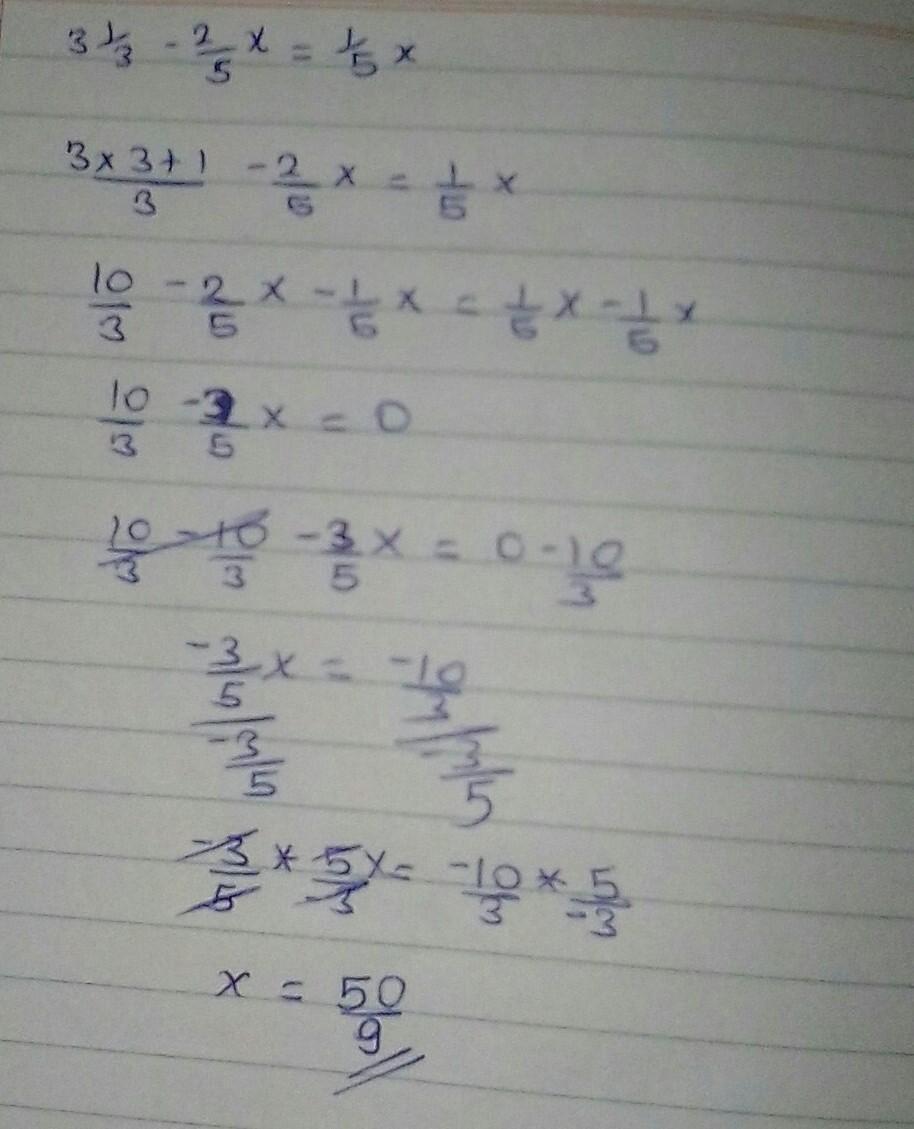 3 1/3 - 2/5 x = 1/5 x
3 x 3 + 1 / 3 - 2/5 x = 1/5 x
10/3 - 2/5 x - 1/5 x = 1/5 x - 1/5 x
10/3 - 3/5 x = 0
10/3 - 10/3 - 3/5 x = 0 - 10/3
-3/5 x / -3/5 = -10/3 / -3/5
-3/5 * 5/-3 x = -10/3 * 5/-3
x = 50/9